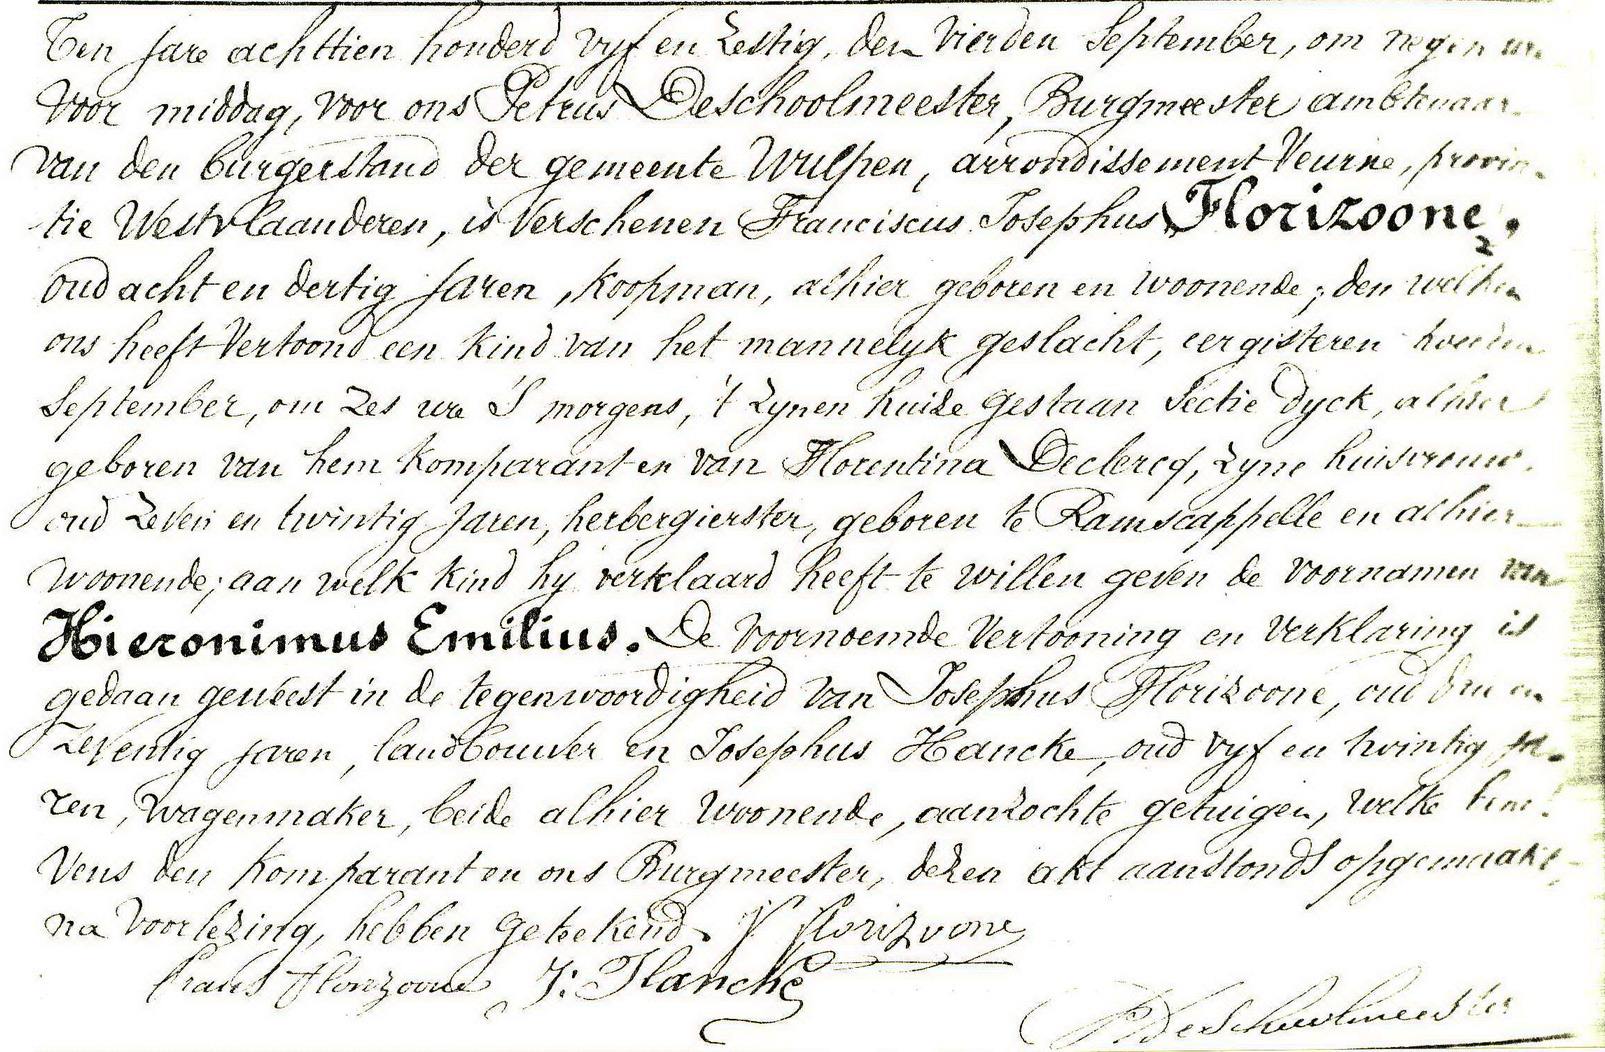 Ten jare achttien honderd vyf en zestig, den vierden September, om negen ure
voor middag, voor ons Petrus Deschoolmeester, Burgmeester ambtenaar
van den burgerstand der gemeente Wulpen, arrondissement Veurne, provin-
tie Westvlaanderen, is verschenen Franciscus Josephus Florizoone,
oud acht en dertig jaren, koopman, alhier geboren en woonende; den welken
ons heeft vertoond een kind van het mannelyk geslacht, eergisteren
September, om zes ure 's morgens, 't zynen huize gestaan Sectie Dyck, alhier
geboren van hem komparant en van Florentina Declercq, zyne huisvrouw,
oud zeven en twintig jaren, herbergierster, geboren te Ramscappelle en alhier
woonende; aan welk kind hy verklaard heeft te willen geven de voornamen van
Hieronimus Emilius. De voornoemde vertooning en verklaring is
gedaan geweest in de tegenwoordigheid van Josephus Florizoone, oud dru en
zeventig jaren, landbouwer en Josephus Hancke, oud vyf en twintig ja-
ren, wagenmaker, beide alhier woonende, aanzochte getuigen, welke
vens den komparant en ons Burgmeester, dezen akt aanstonds opgemaakt,
na voorlezing, hebben geteekend. J florizoone
frans florizoone J: Hancke
P Deschoolmeester